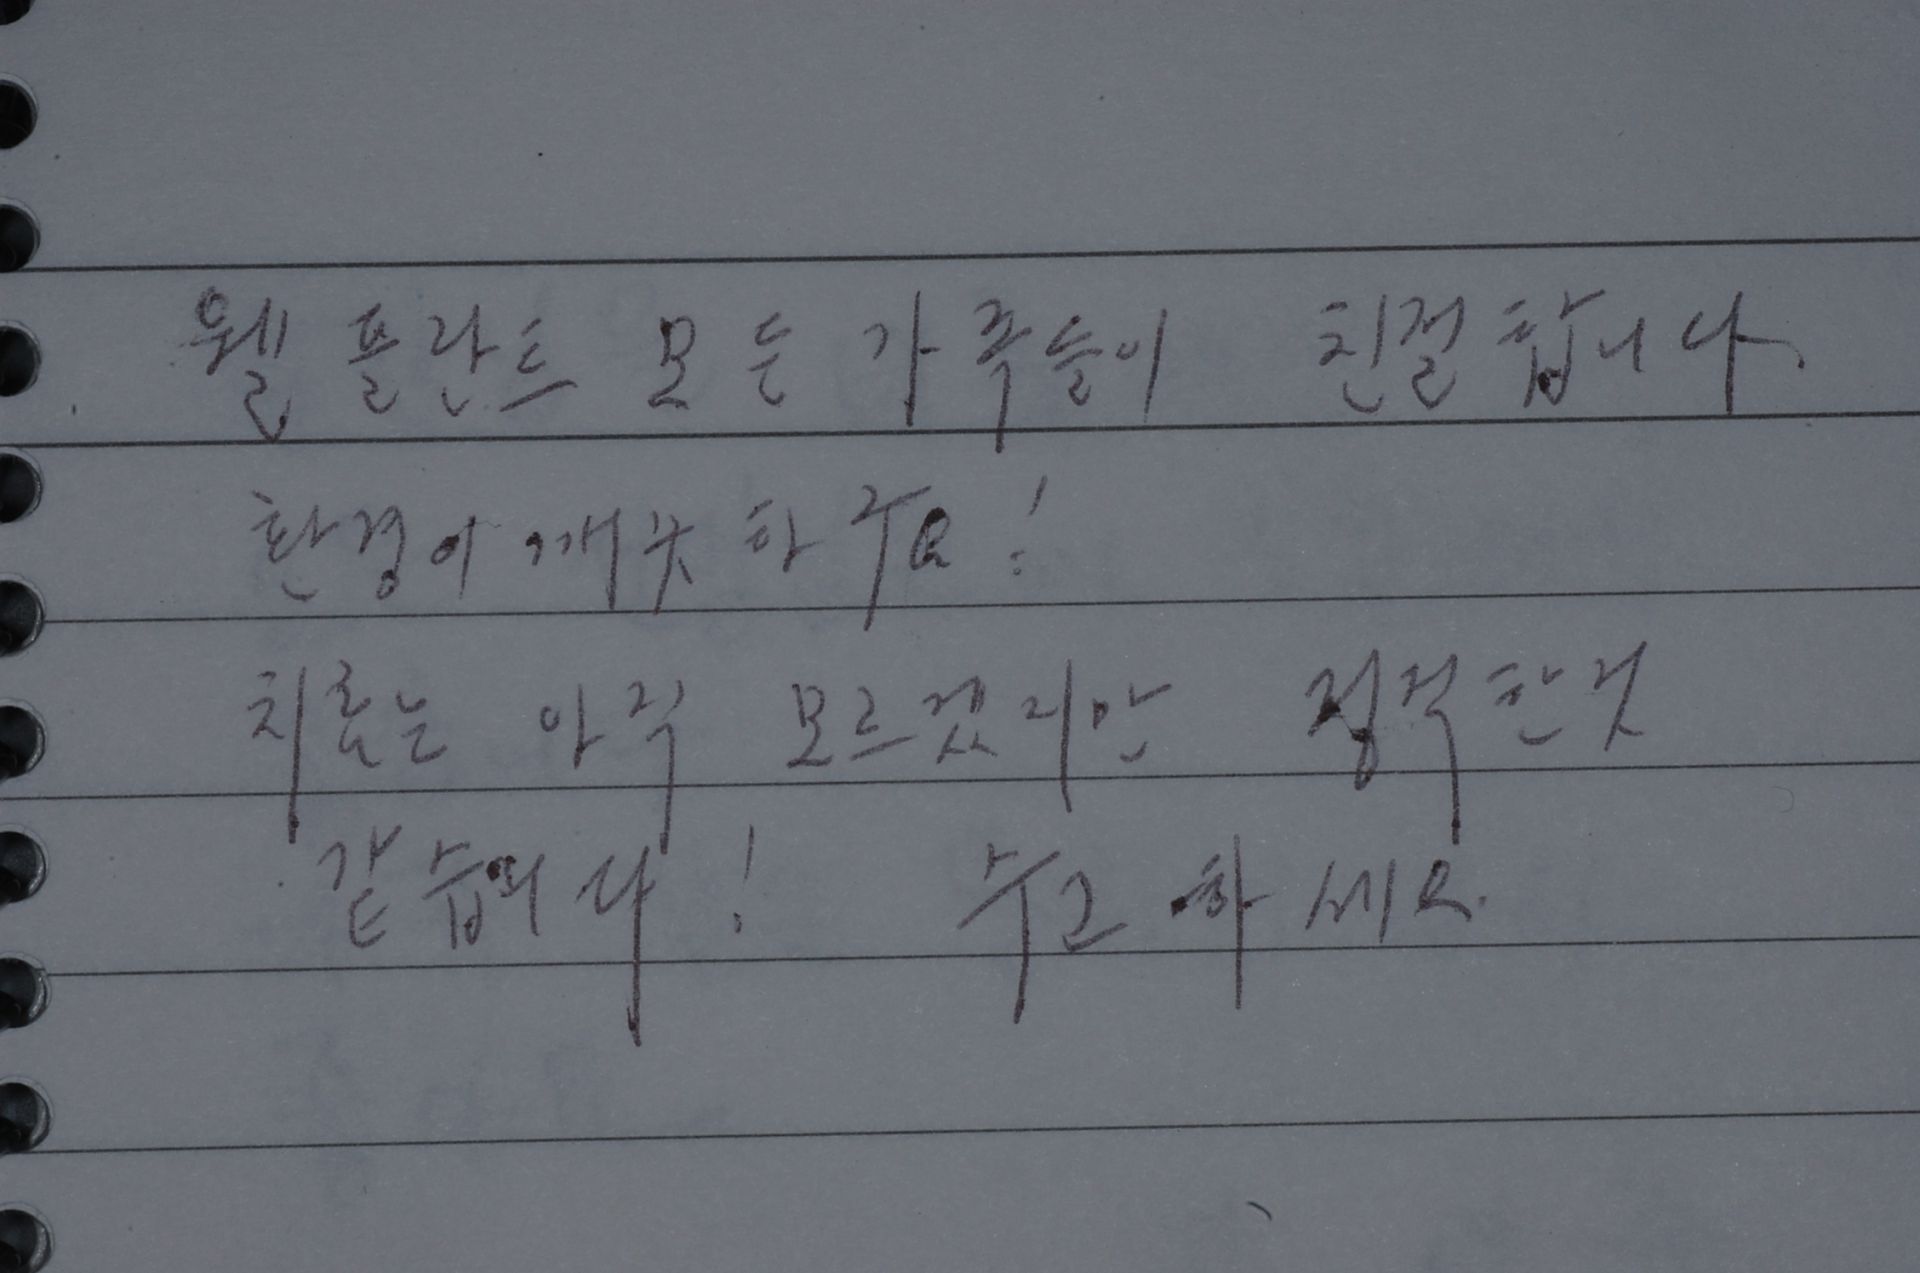 웰플란트 모든 가족들이 친절합니다
환경이 깨끗하구요!
치료는 아직 모르겠지만 정직한것
같습니다! 수고하세요.